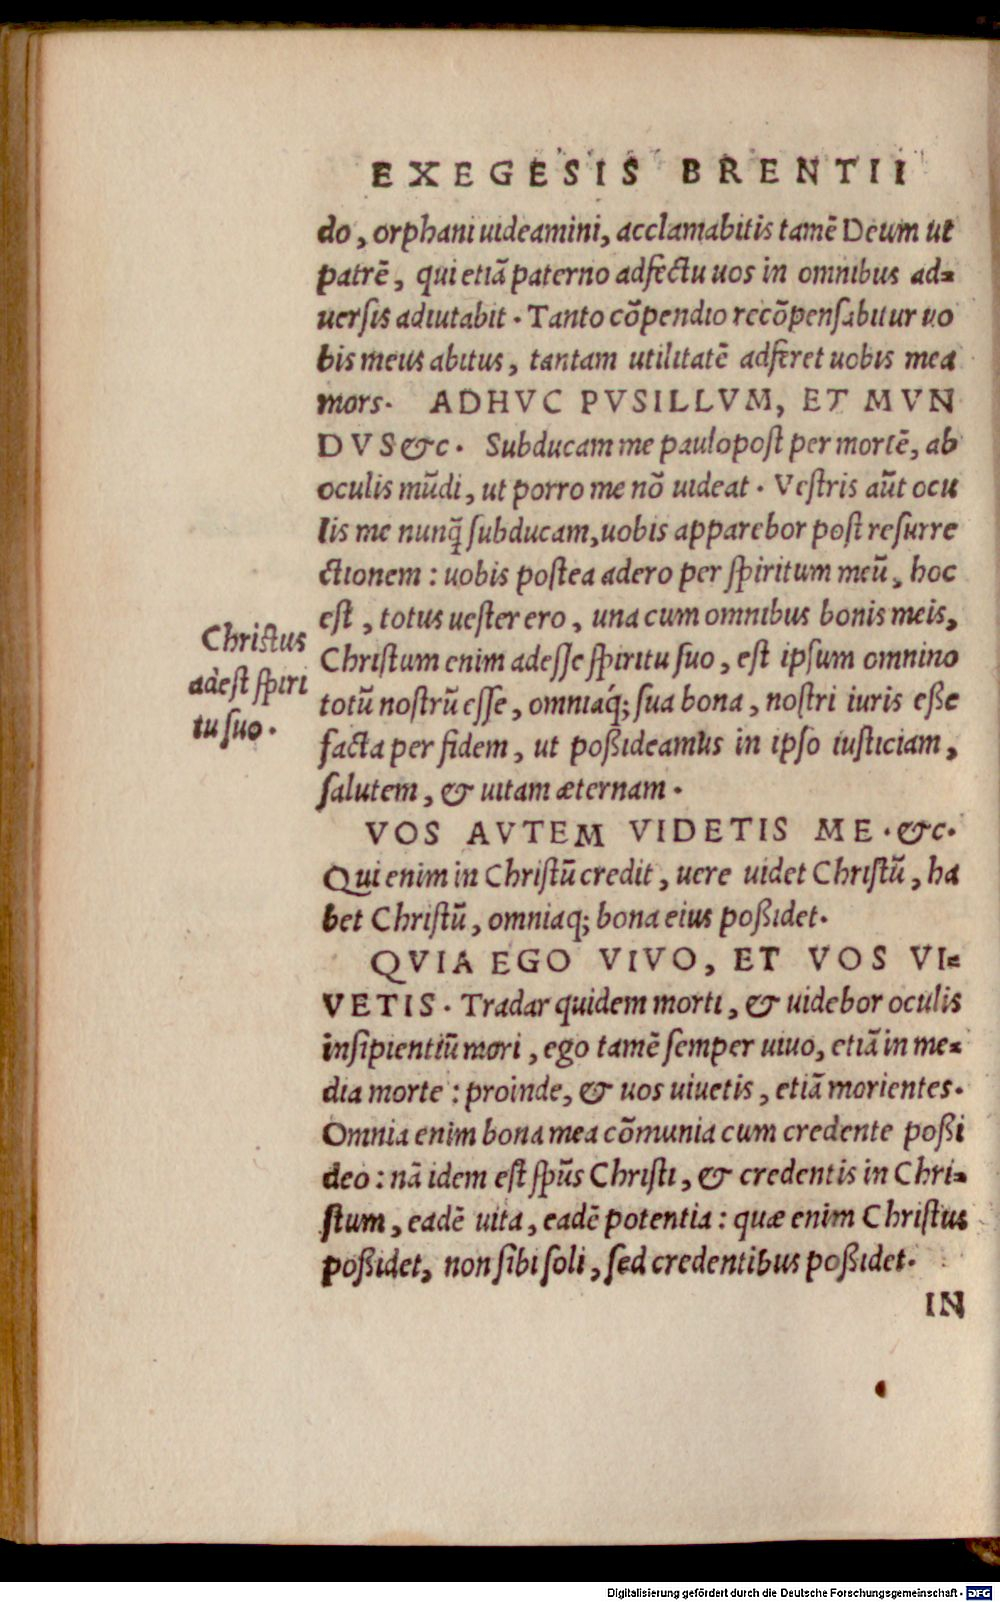 EXEGESIS BRENTII
do, orphani uideamini, acclamabitis tamē Deum ut
patrē, qui etiā paterno adfectu uos in omnibus ad=
uersis adiutabit. Tanto cōpendio recōpensabitur uo
bis meus abitus, tantam utilitatē adferet uobis mea
mors. ADHVC PVSILLVM, ET MVN
DVS &c. Subducam me paulo post per mortē, ab
oculis mūdi, ut porro me nō uideat. Vestris aūt ocu
lis me nunq̄ subducam, uobis apparebor post resurre
ctionem: uobis postea adero per spiritum meū, hoc
est, totus uester ero, una cum omnibus bonis meis,
Christum enim adesse spiritu suo, est ipsum omnino
totū nostrū esse, omniaq́; sua bona, nostri iuris eße
facta per fidem, ut poßideamus in ipso iusticiam,
salutem, & uitam æternam.
Christus
adest spiri
tu suo.
VOS AVTEM VIDETIS ME. &c.
Qui enim in Christū credit, uere uidet Christū, ha
bet Christū, omniaq; bona eius poßidet.
QVIA EGO VIVO, ET VOS VI=
VETIS. Tradar quidem morti, & uidebor oculis
insipientiū mori, ego tamē semper uiuo, etiā in me=
dia morte: proinde, & uos uiuetis, etiā morientes.
Omnia enim bona mea cōmunia cum credente poßi
deo: nā idem est spūs Christi, & credentis in Chri=
stum, eadē uita, eadē potentia: quæ enim Christus
poßidet, non sibi soli, sed credentibus poßidet.
IN
Digitalisierung gefördert durch die Deutsche Forschungsgemeinschaft - DFG